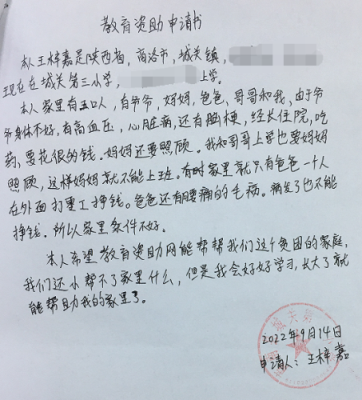 教育资助申请书
本人王梓嘉是陕西省,商洛市,城关镇,
现在在城关第三小学, 上学。
本人家里有五口人,有爷爷,妈妈,爸爸、哥哥和我,由于爷
爷身体不好,有高血压,心脏病,还有脑梗,经长住院,吃
药,要花很的钱。妈妈还要照顾。我和哥哥上学也要妈妈
照顾,这样妈妈就不能上班。有时家里就只有爸爸一个人
在外面打重工挣钱。爸爸还有腰痛的毛病。痛苦了也不能
挣钱。所以家里条件不好。
本人希望教育资助网能帮帮我们这个贫困的家庭,
我们还小帮不了家里什么,但是我会好好学习,长大了就
能帮助我的家里了。
2022年9月14日
申请人:王梓嘉